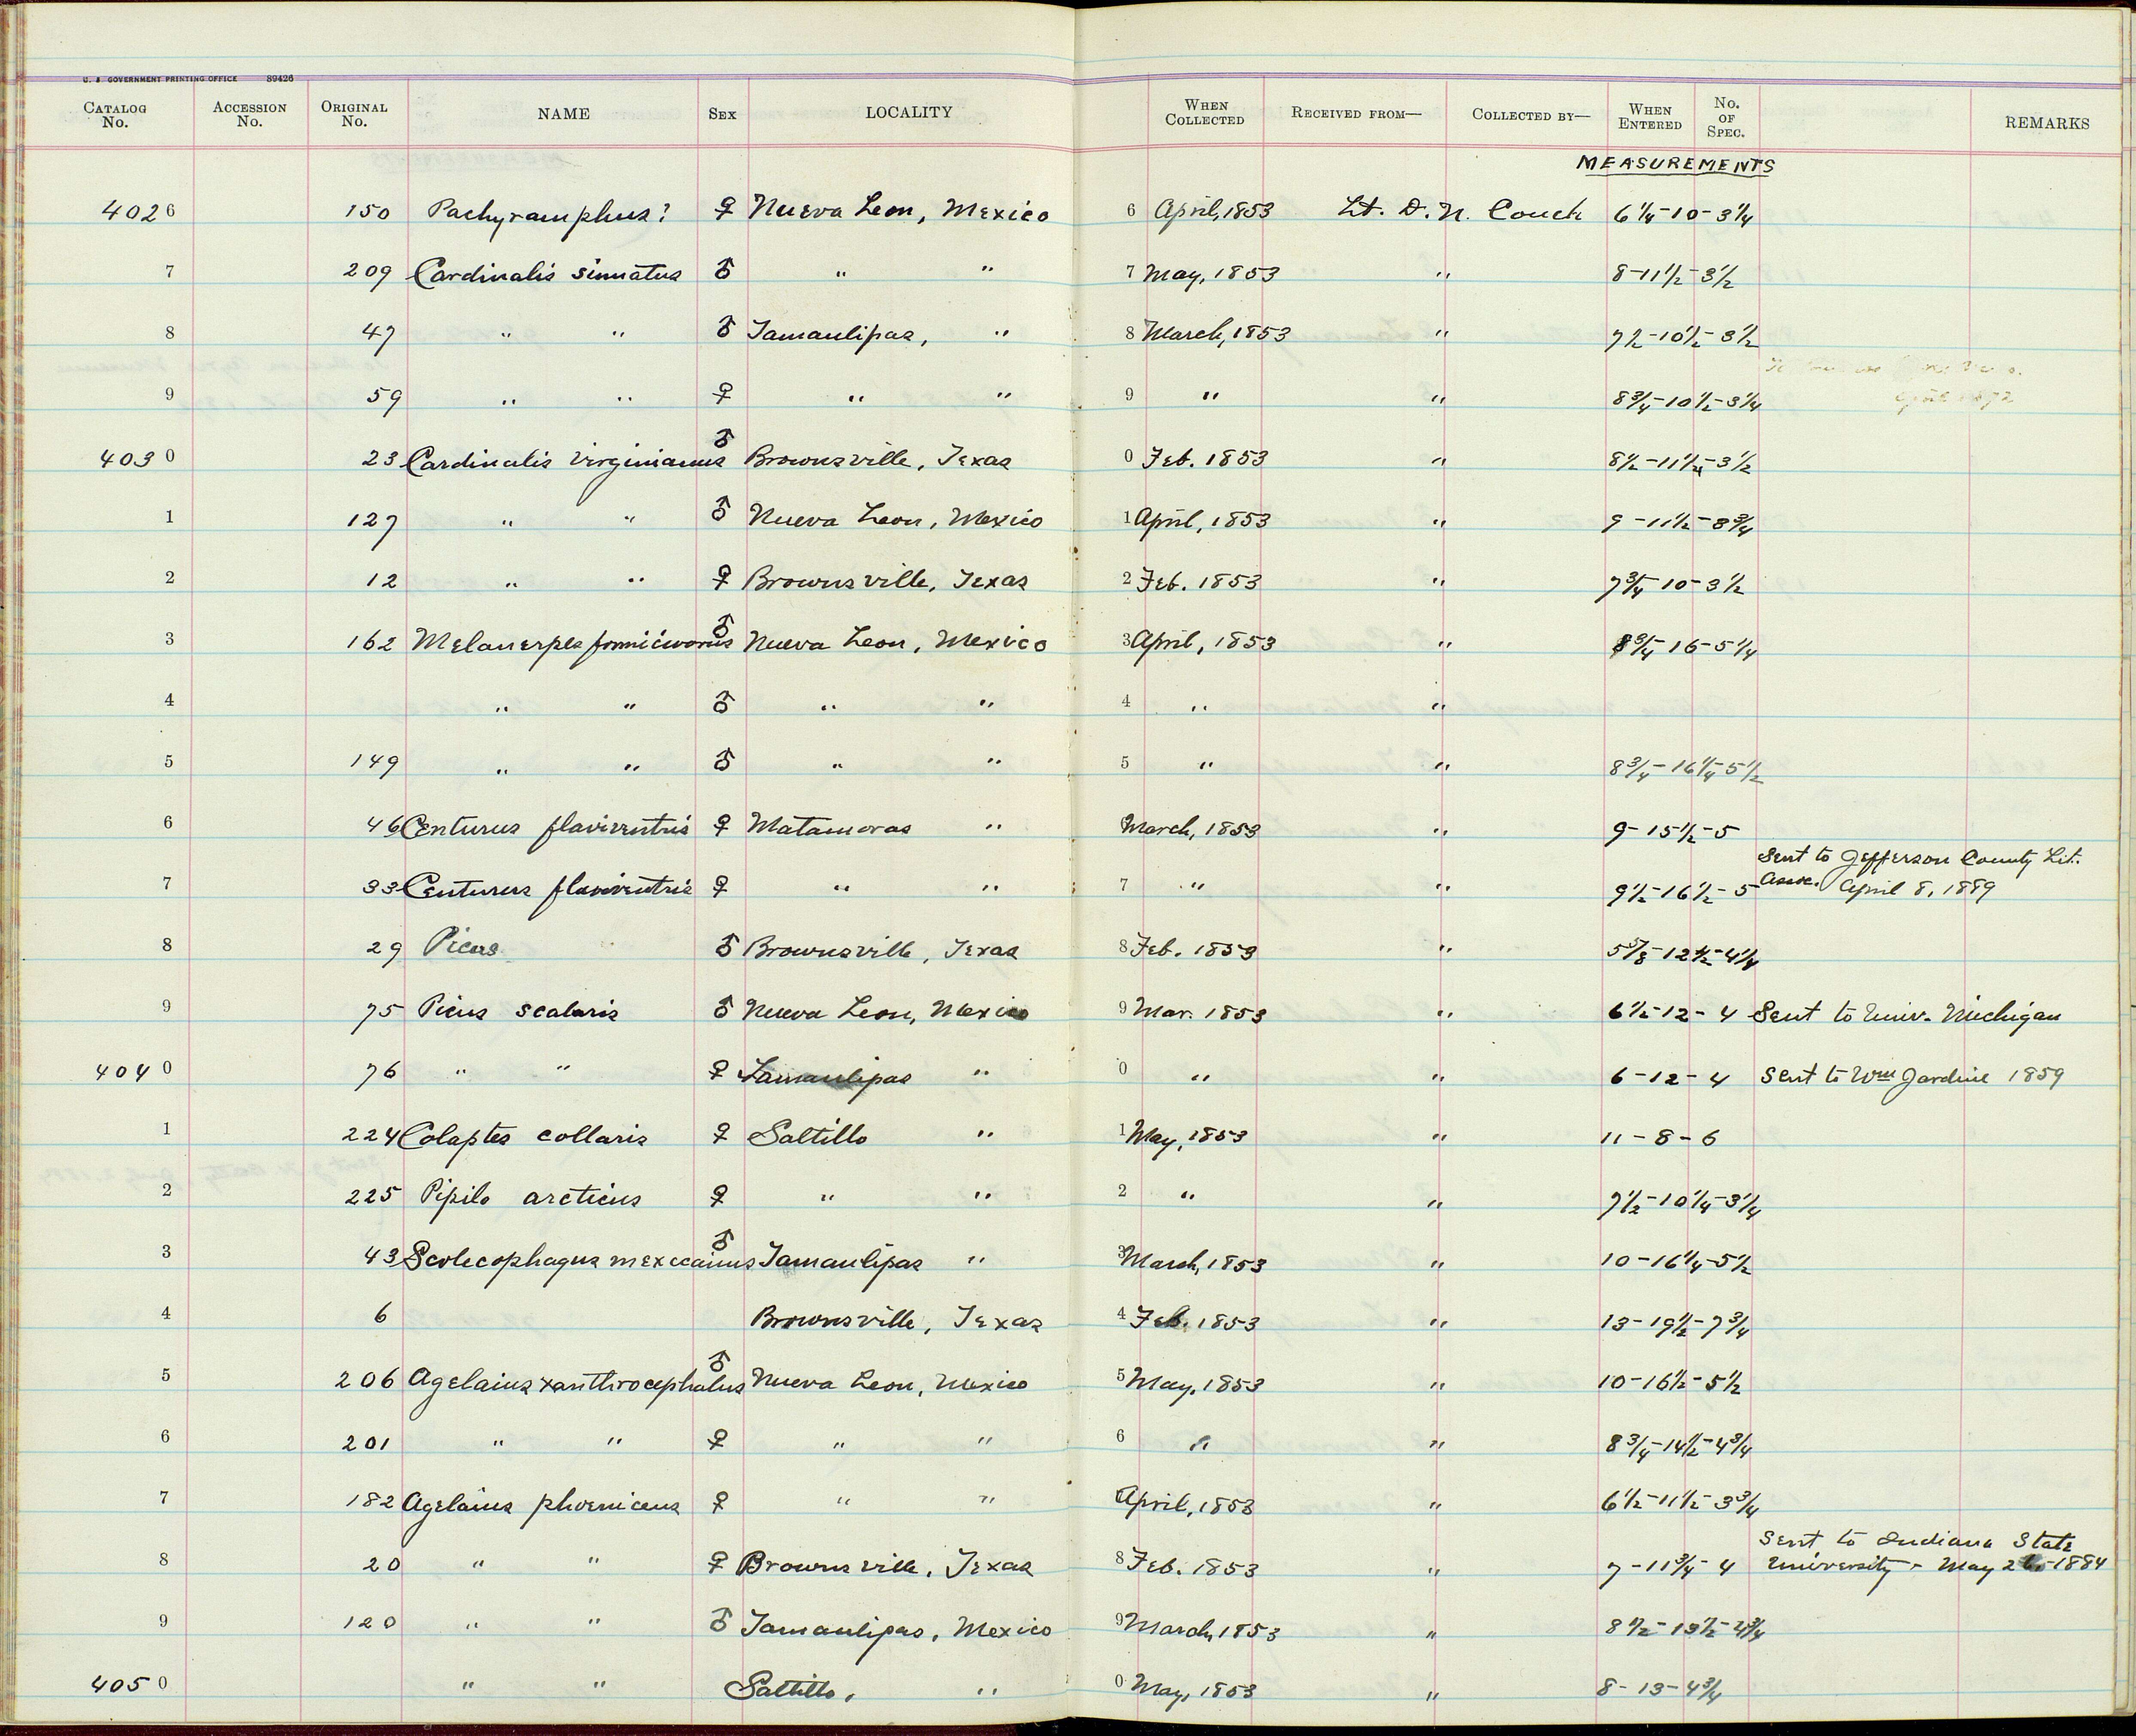 U. S. GOVERNMENT PRINTING OFFICE 89426
CATALOG No. ACCESSION No. ORIGINAL No. NAME SEX LOCALITY WHEN COLLECTED RECEIVED FROM— COLLECTED BY— WHEN ENTERED No. OF SPEC. REMARKS
MEASUREMENTS
4026 150 Pachyramphus? ♀ Nueva Leon, Mexico 6 April, 1853 Lt. D. N. Couch 6 1/4 - 10 - 3 1/4
7 209 Cardinalis sinuatus ♂ " " 7 May, 1853 " 8 - 11 1/2 - 3 1/2
8 47 " " ♂ Tamaulipas, " 8 March, 1853 " 7 1/2 - 10 1/2 - 3 1/2
9 59 " " ♀ " " 9 " " 8 3/4 - 10 1/2 - 3 1/4
4030 23 Cardinalis virginianus ♂ Brownsville, Texas 0 Feb. 1853 " 8 1/2 - 11 1/4 - 3 1/2
1 127 " " ♂ Nueva Leon, Mexico 1 April, 1853 " 9 - 11 1/2 - 3 3/4
2 12 " " ♀ Brownsville, Texas 2 Feb. 1853 " 7 3/4 - 10 - 3 1/2
3 162 Melanerpes formicivorus ♂ Nueva Leon, Mexico 3 April, 1853 " 8 3/4 - 16 - 5 1/4
4 " " ♂ " " 4 " "
5 149 " " ♂ " " 5 " " 8 3/4 - 16 1/4 - 5 1/2
6 46 Centurus flaviventris ♀ Matamoras " March, 1853 " 9 - 15 1/2 - 5
7 33 Centurus flaviventris ♀ " " 7 " " 9 1/2 - 16 1/2 - 5 Sent to Jefferson County Lit.
Assc. April 8, 1889
8 29 Picus ♂ Brownsville, Texas 8 Feb. 1853 " 5 5/8 - 12 1/2 - 4 1/4
9 75 Picus scalaris ♂ Nueva Leon, Mexico 9 Mar. 1853 " 6 1/2 - 12 - 4 Sent to Univ. Michigan
4040 76 " " ♀ Tamaulipas " 0 " " 6 - 12 - 4 Sent to Wm Jardine 1859
1 224 Colaptes collaris ♀ Saltillo " 1 May, 1853 " 11 - 8 - 6
2 225 Pipilo arcticus ♀ " " 2 " " 7 1/2 - 10 1/4 - 3 1/4
3 43 Scolecophagus mexicanus ♂ Tamaulipas " 3 March, 1853 " 10 - 16 1/4 - 5 1/2
4 6 Brownsville, Texas 4 Feb. 1853 " 13 - 19 1/2 - 7 3/4
5 206 Agelaius xanthrocephalus ♂ Nueva Leon, Mexico 5 May, 1853 " 10 - 16 1/2 - 5 1/2
6 201 " " ♀ " " 6 " " 8 3/4 - 14 1/2 - 4 3/4
7 182 Agelaius phoeniceus ♀ " " April, 1853 " 6 1/2 - 11 1/2 - 3 3/4
8 20 " " ♀ Brownsville, Texas 8 Feb. 1853 " 7 - 11 3/4 - 4 Sent to Indiana State
University - May 1884
9 120 " " ♂ Tamaulipas, Mexico 9 March, 1853 " 8 1/2 - 13 1/2 - 4 3/4
4050 " " Saltillo, " 0 May, 1853 " 8 - 13 - 4 3/4